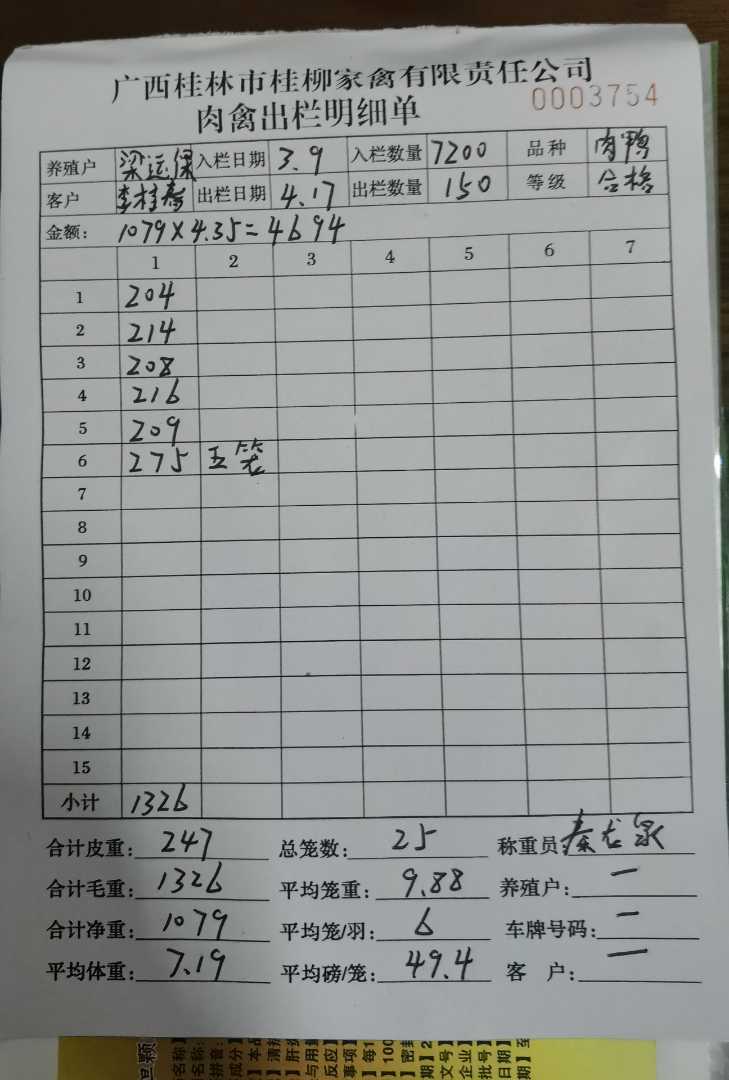 广西桂林市桂柳家禽有限责任公司
肉禽出栏明细单 0003754
养殖户 梁运保 入栏日期 3.9 入栏数量 7200 品种 肉鸭
客户 李桂春 出栏日期 4.17 出栏数量 150 等级 合格
金额: 1079×4.35=4694
1 2 3 4 5 6 7
1 204
2 214
3 208
4 216
5 209
6 275 五笼
7
8
9
10
11
12
13
14
15
小计 1326
合计皮重: 247 总笼数: 25 称重员 秦龙泉
合计毛重: 1326 平均笼重: 9.88 养殖户: 一
合计净重: 1079 平均笼/羽: 6 车牌号码: 一
平均体重: 7.19 平均磅/笼: 49.4 客 户: 一